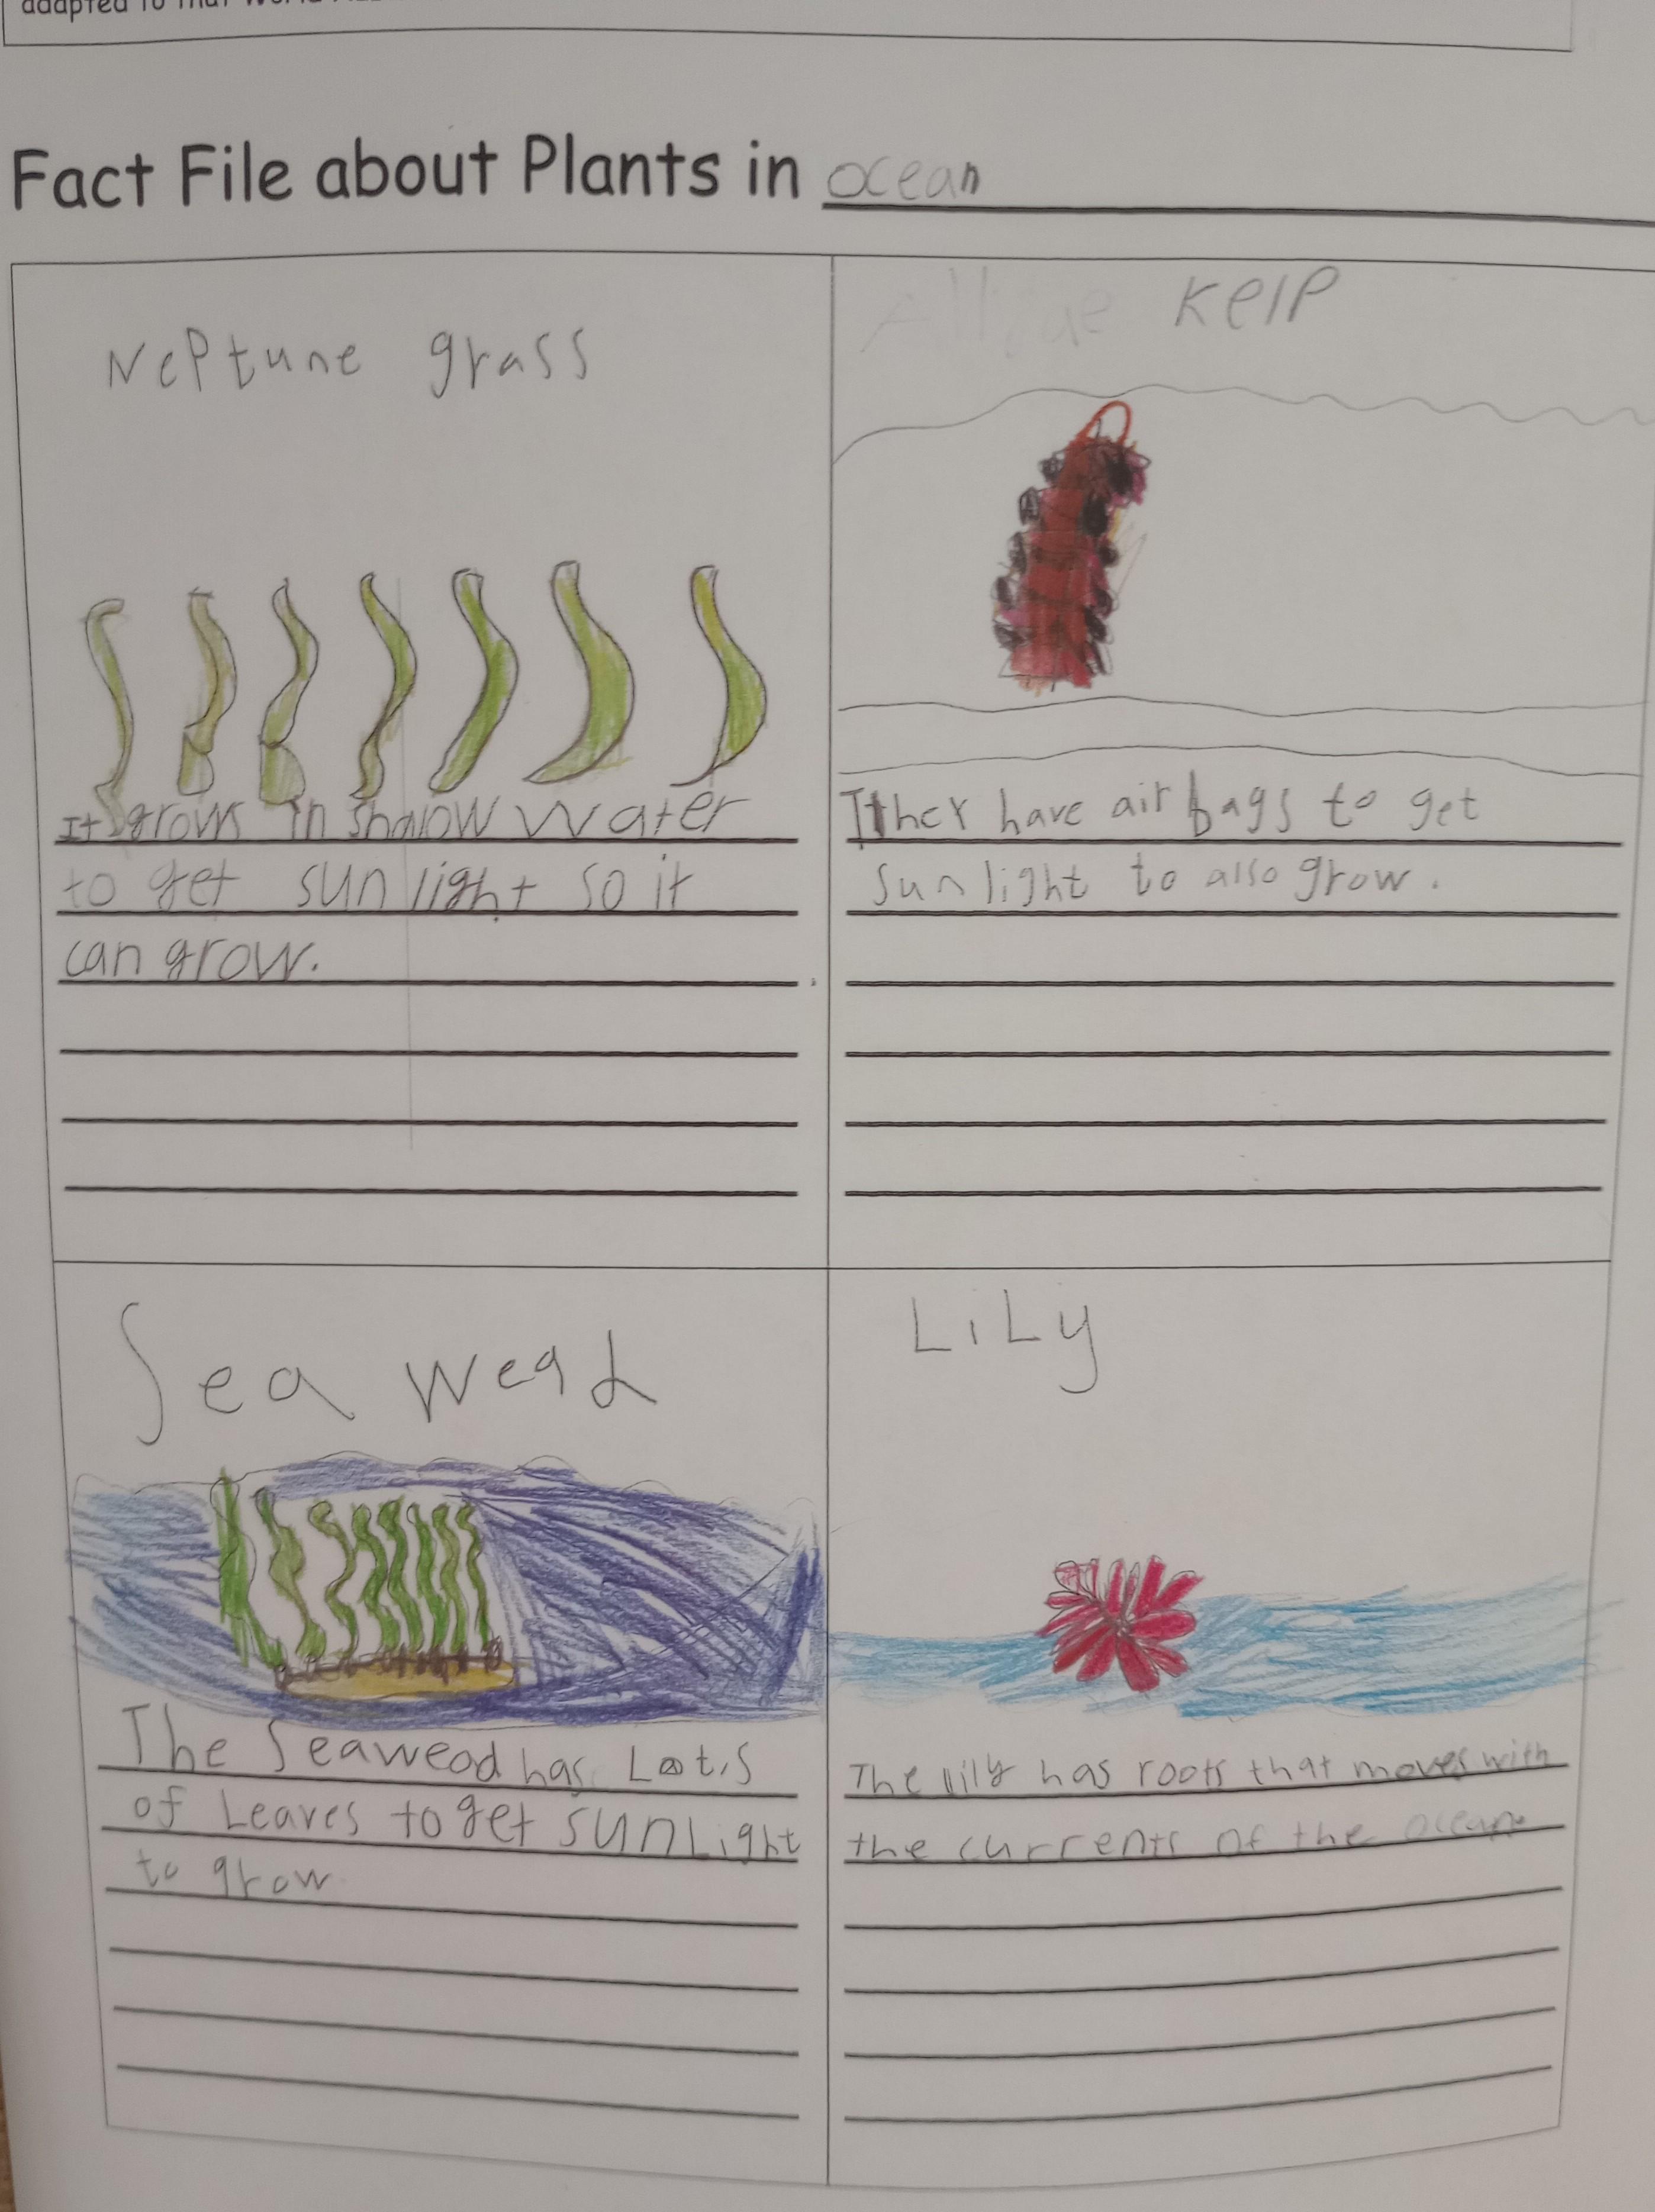 adapted to that
Fact File about Plants in ocean
Neptune grass
It grows in shalow water
to get sun light so it
can grow.
Kelp
Ther have air bags to get
sunlight to also grow.
Sea wead
The Seawead has Lots
of Leaves to get sunLight
to grow
LiLy
The lily has roots that moves with
the currents of the ocean.